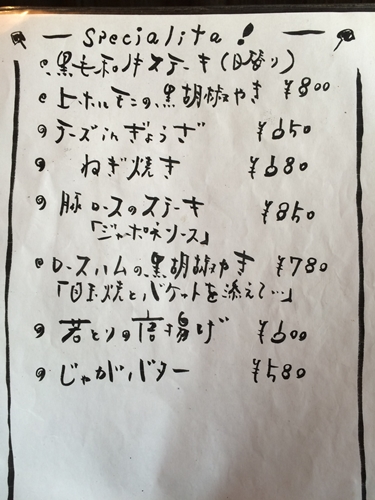 Specialita!
黒毛和牛ステーキ(日替り)
上ホルモンの黒胡椒やき ¥800
チーズinぎょうざ ¥650
ねぎ焼き ¥680
豚ロースのステーキ ¥850
「ジャーポネソース」
ロースハムの黒胡椒やき ¥780
「目玉焼とバケットを添えて…」
若とりの唐揚げ ¥600
じゃがバター ¥580